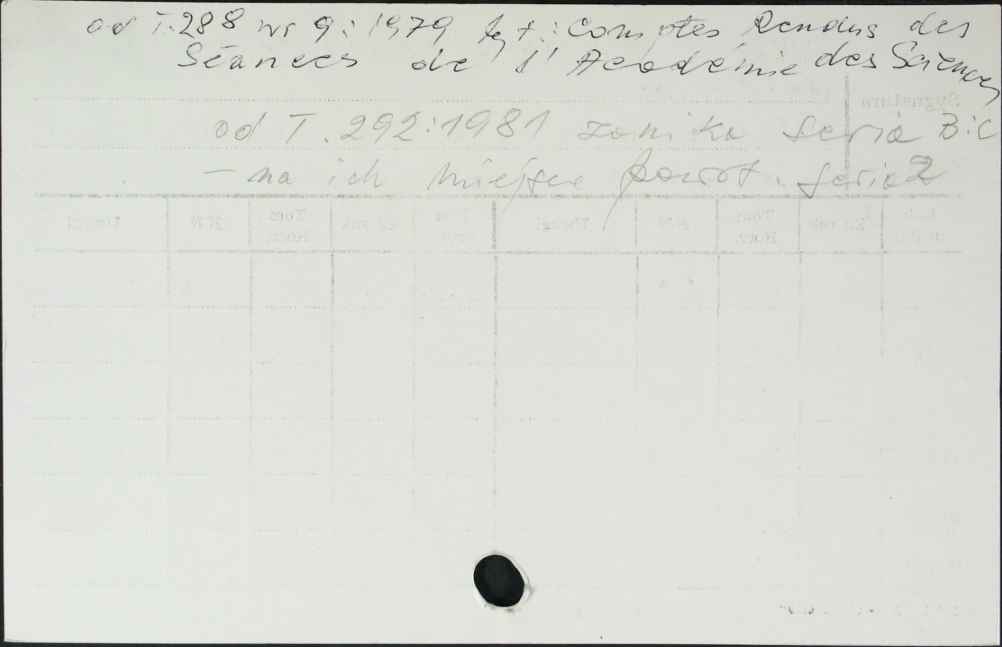 od T.288 nr 9:1979 tyt.: Comptes Rendus des
Séances de l'Académie des Sciences
od T. 292:1981 zanika seria B i C
– na ich miejsce powst. seria 2